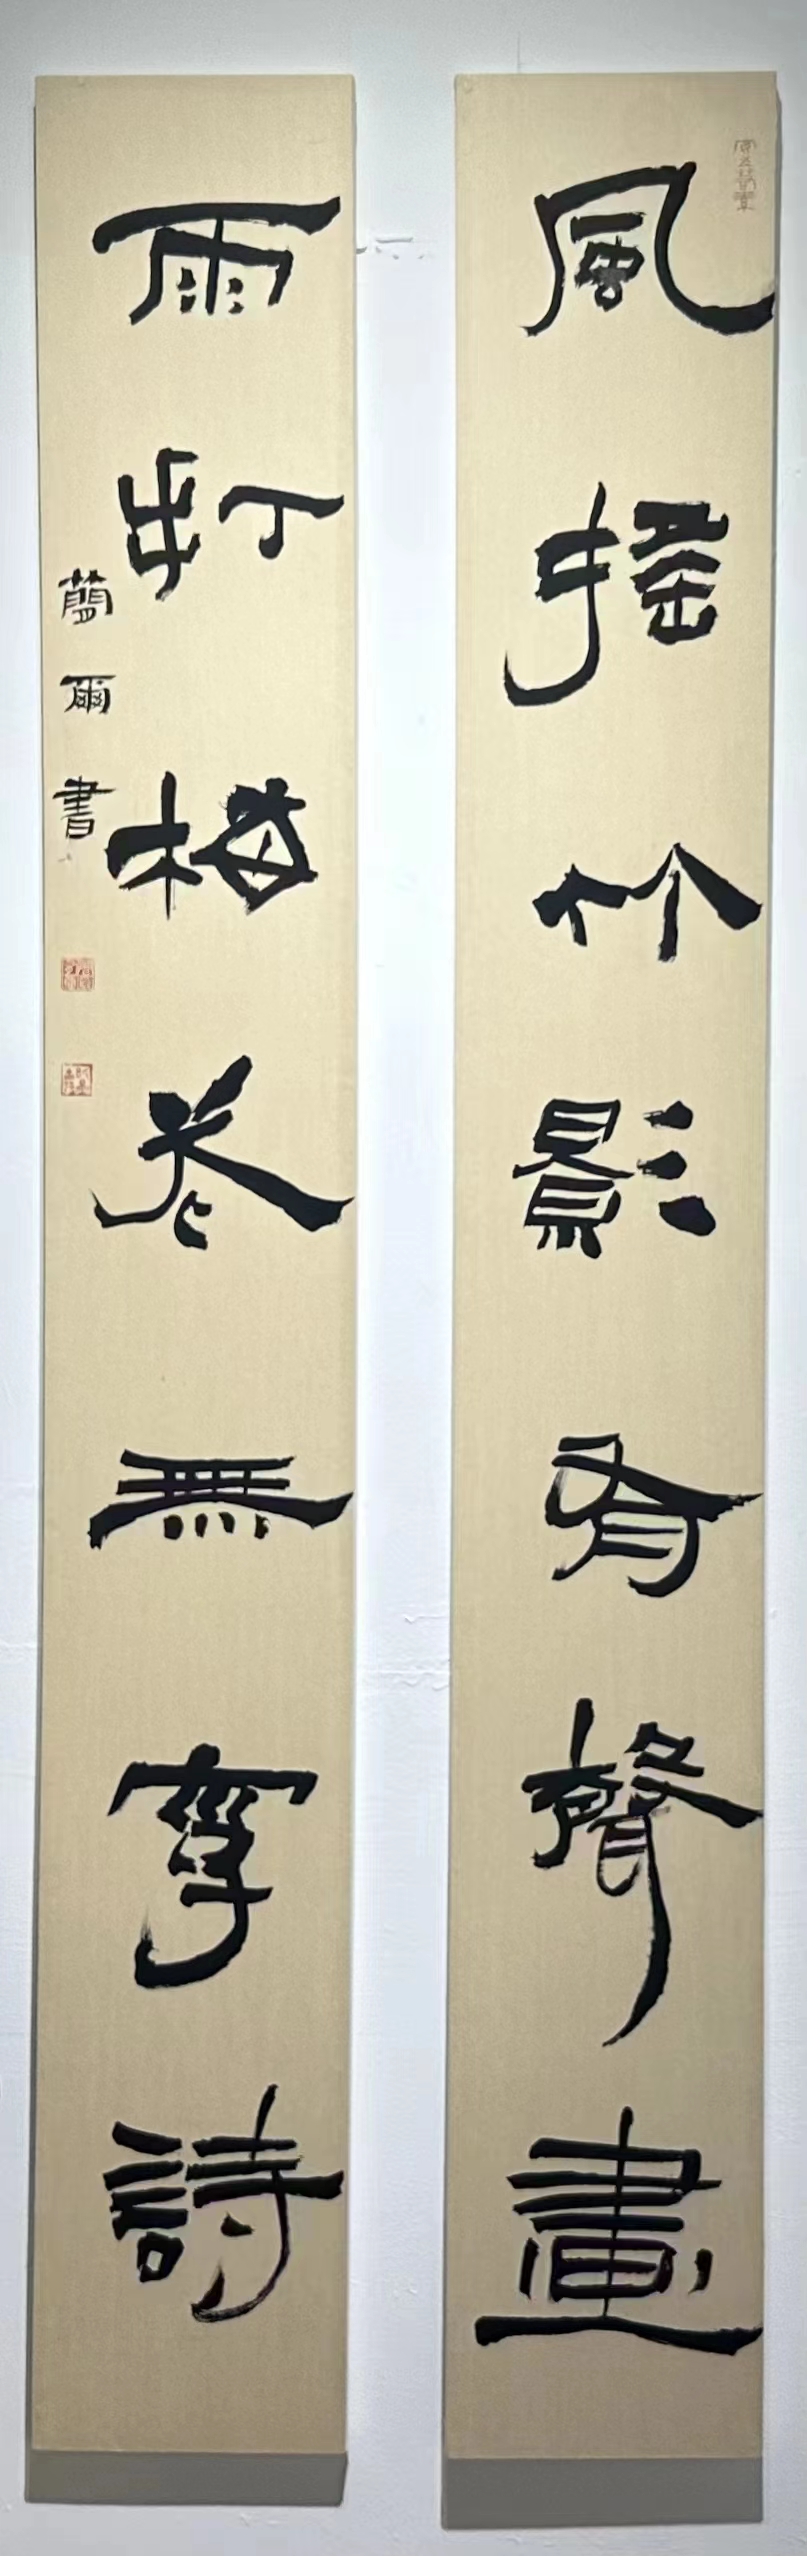 風搖竹影有聲畫
雨打梅花無字詩
爾書